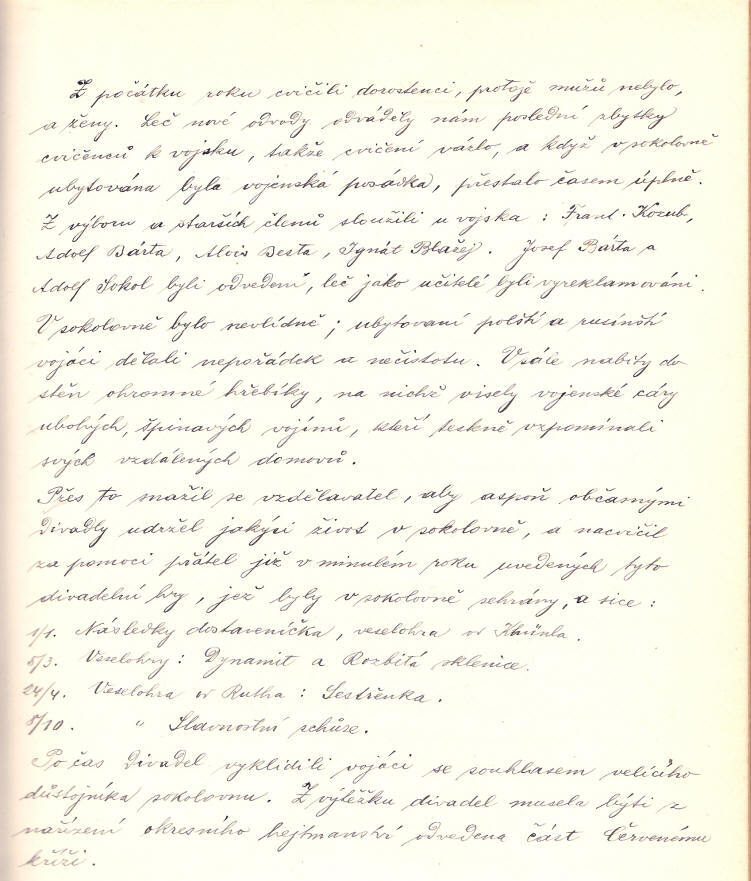 Z počátku roku cvičili dorostenci, protože mužů nebylo,
a ženy. Leč nové odvody odváděly nám poslední zbytky
cvičenců k vojsku, takže cvičení vázlo, a když v sokolovně
ubytována byla vojenská posádka, přestalo časem úplně.
Z výboru a starších členů sloužili u vojska: Frant. Kozub,
Adolf Bárta, Alois Besta, Ignát Blažej. Josef Bárta a
Adolf Sokol byli odvedeni, leč jako učitelé byli vyreklamováni.
V sokolovně bylo nevlídně; ubytovaní polští a rusínští
vojáci dělali nepořádek a nečistotu. V sále nabity do
stěn ohromné hřebíky, na nichž visely vojenské cáry
ubohých, špinavých vojínů, kteří teskně vzpomínali
svých vzdálených domovů.
Přes to snažil se vzdělavatel, aby aspoň občasnými
divadly udržel jakýsi život v sokolovně, a nacvičil
za pomoci přátel již v minulém roku uvedených tyto
divadelní hry, jež byly v sokolovně sehrány, a sice:
1/1. Následky dostaveníčka, veselohra od
5/3. Veselohry: Dynamit a Rozbitá sklenice.
24/4. Veselohra od Rutha: Sestřenka.
8/10. " Slavnostní schůze.
Po čas divadel vyklidili vojáci se souhlasem velícího
důstojníka sokolovnu. Z výtěžku divadel musela býti z
nařízení okresního hejtmanství odvedena část Červenému
kříži.